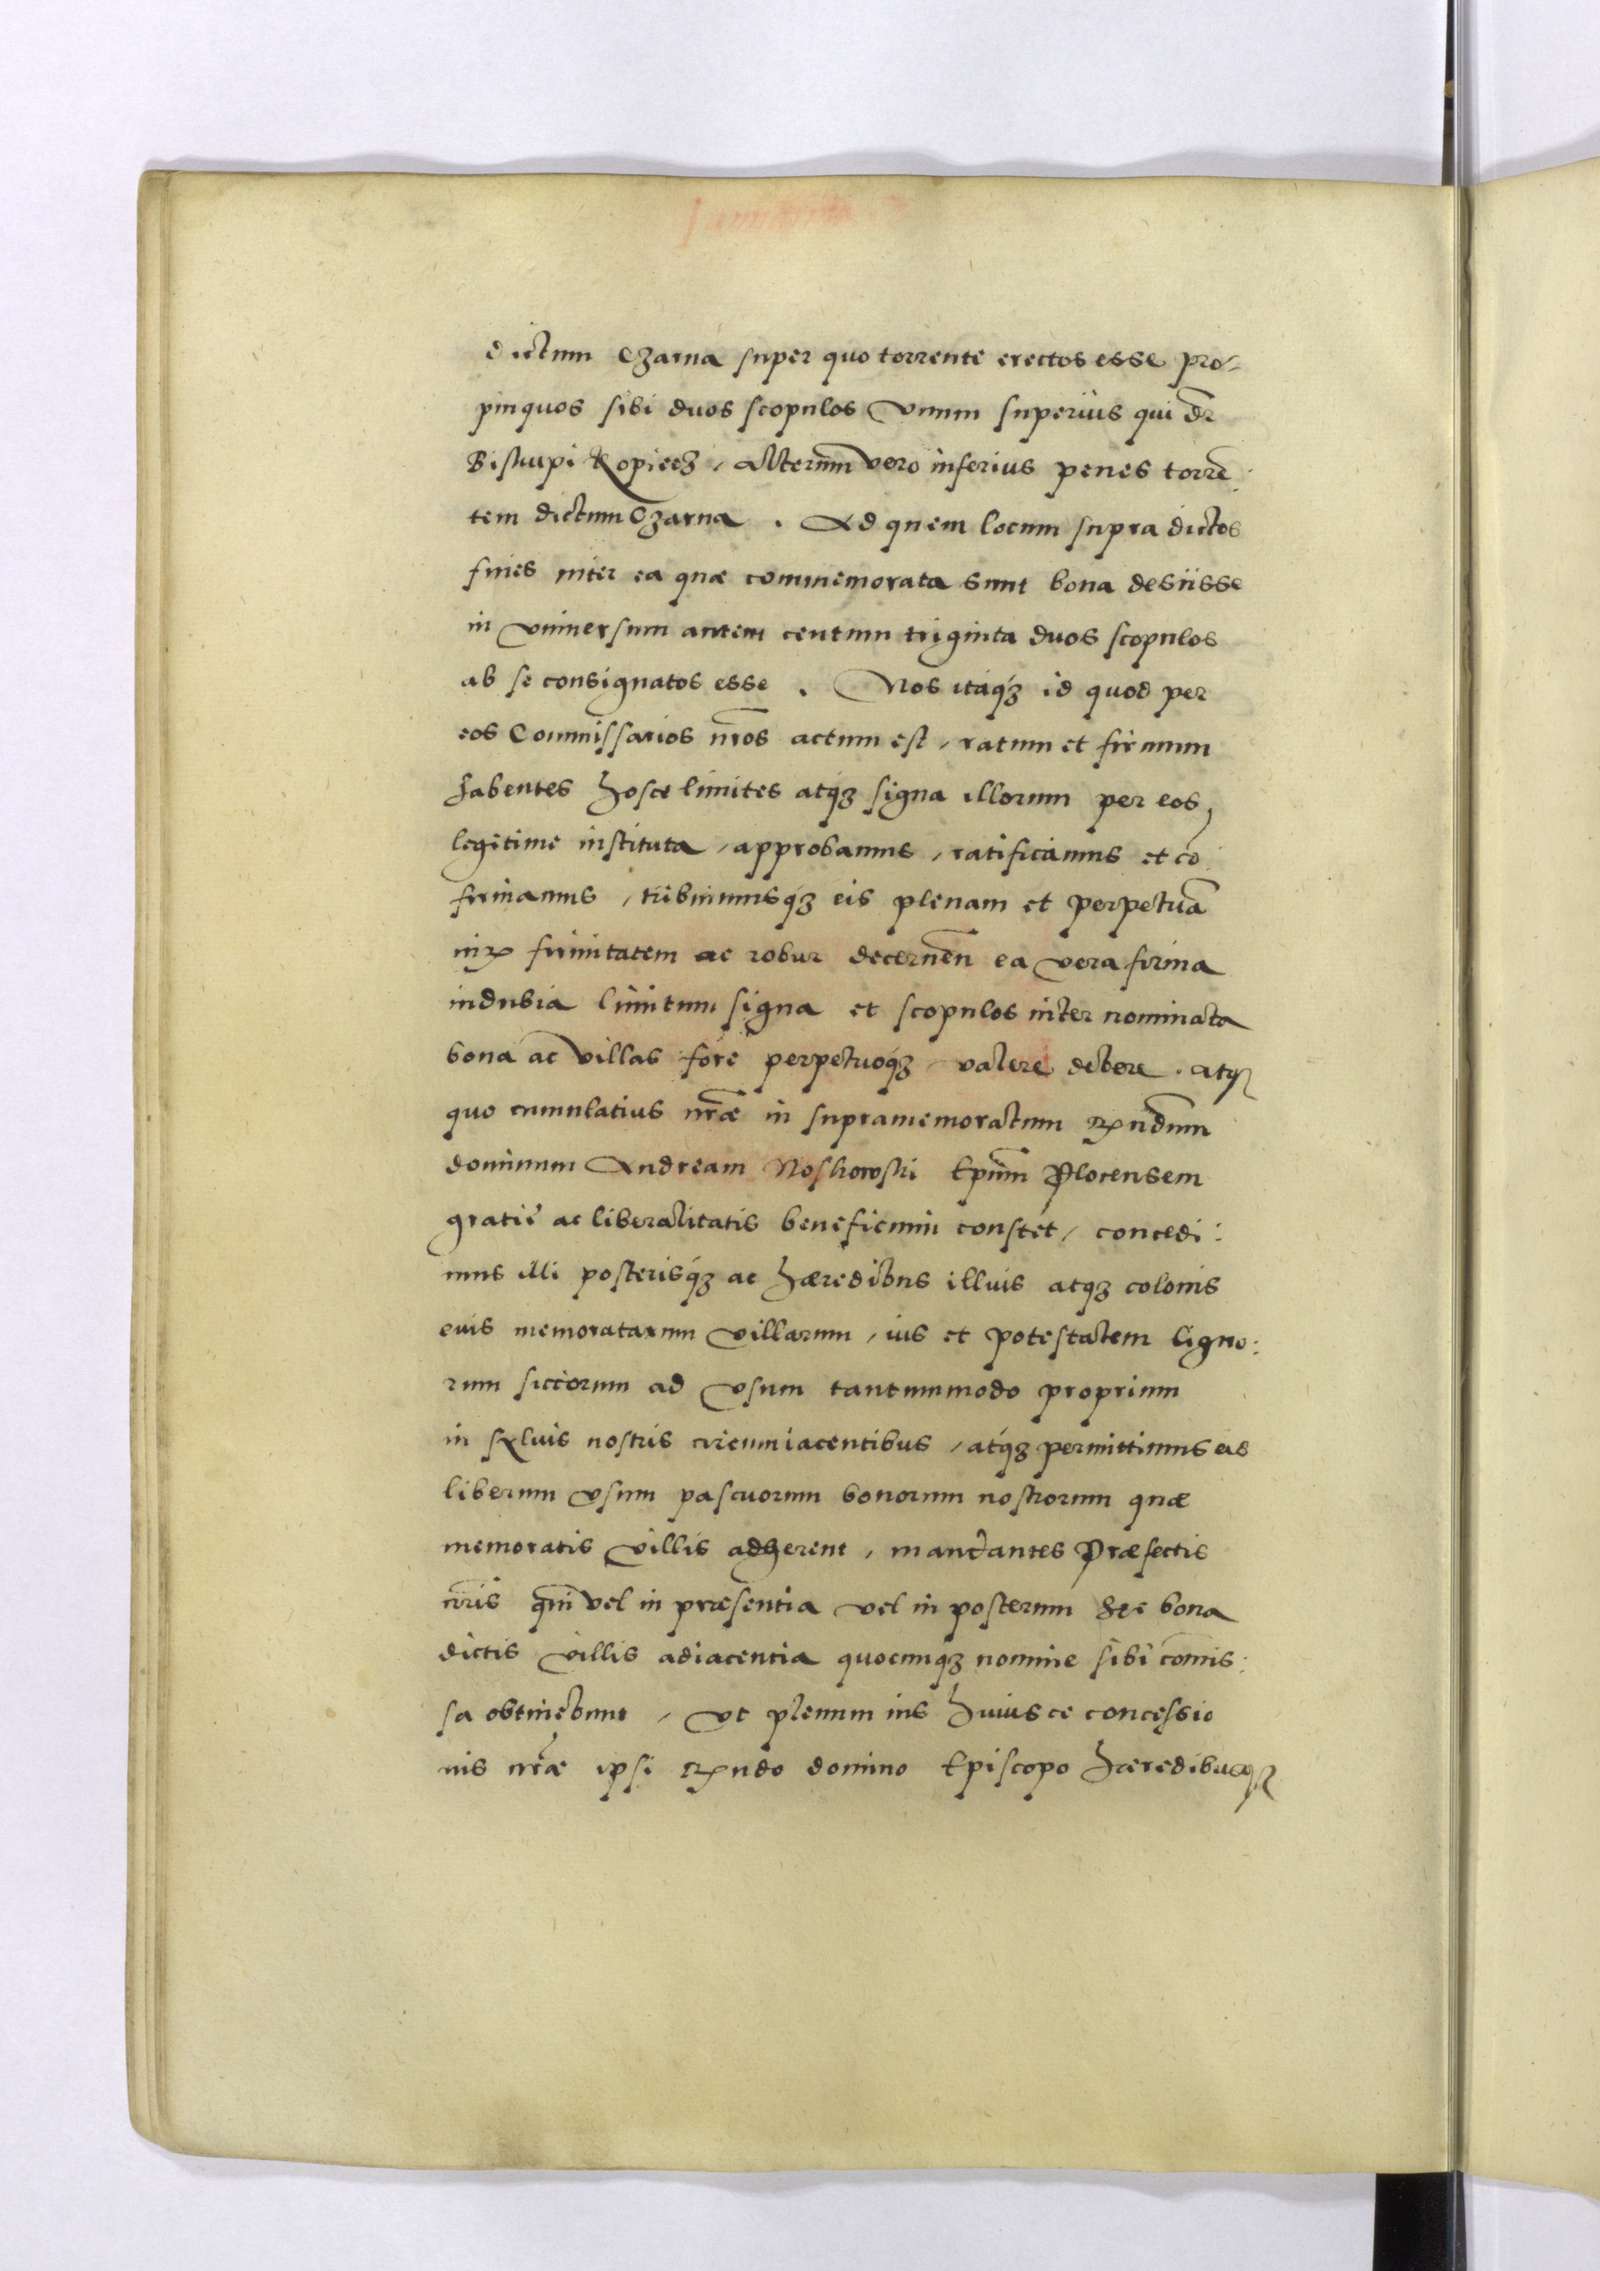 dictum Czarna super quo torrente erectos esse pro-
pinquos sibi duos scopulos Vnum superius qui dr̄
Biskupi Kopiecz, Alterum̄ vero inferius penes torrē:
tem dictum Czarna. Ad quem locum supra dictos
fines inter ea quæ commemorata sunt bona desiisse
in vniuersum autem centum triginta duos scopulos
ab se consignatos esse. Nos itaqȝ id quod per
eos Commissarios nr̄os actum est, ratum et firmum
habentes hosce limites atqȝ signa illorum per eos
legitime instituta, approbamus, ratificamus et cō
firmamus, tribuimusqȝ eis plenam et perpetuā
firmitatem ac robur decernen̄ ea vera firma
indubia limitum signa et scopulos inter nominata
bona ac villas fore perpetuoqȝ valere debere. atqȝ
quo cumulatius nr̄æ in supramemoratum Rndum̄
dominum Andream Noskowski Epum̄ Plocensem
gratię ac liberalitatis beneficium constet, concedi:
mus illi posterisqȝ ac hæredibus illius atqȝ colonis
eius memoratarum villarum, ius et potestatem ligno:
rum siccorum ad vsum tantummodo proprium
in syluis nostris circumiacentibus, atqȝ permittimus eis
liberum vsum pascuorum bonorum nostrorum quæ
memoratis villis adherent, mandantes Præfectis
nr̄is qui vel in præsentia vel in posterum hęc bona
dictis villis adiacentia quocunqȝ nomine sibi com̄is:
sa obtinebunt, vt plenum ius huiusce concessio
nis nr̄æ ipsi Rndo domino Episcopo hæredibusqȝ